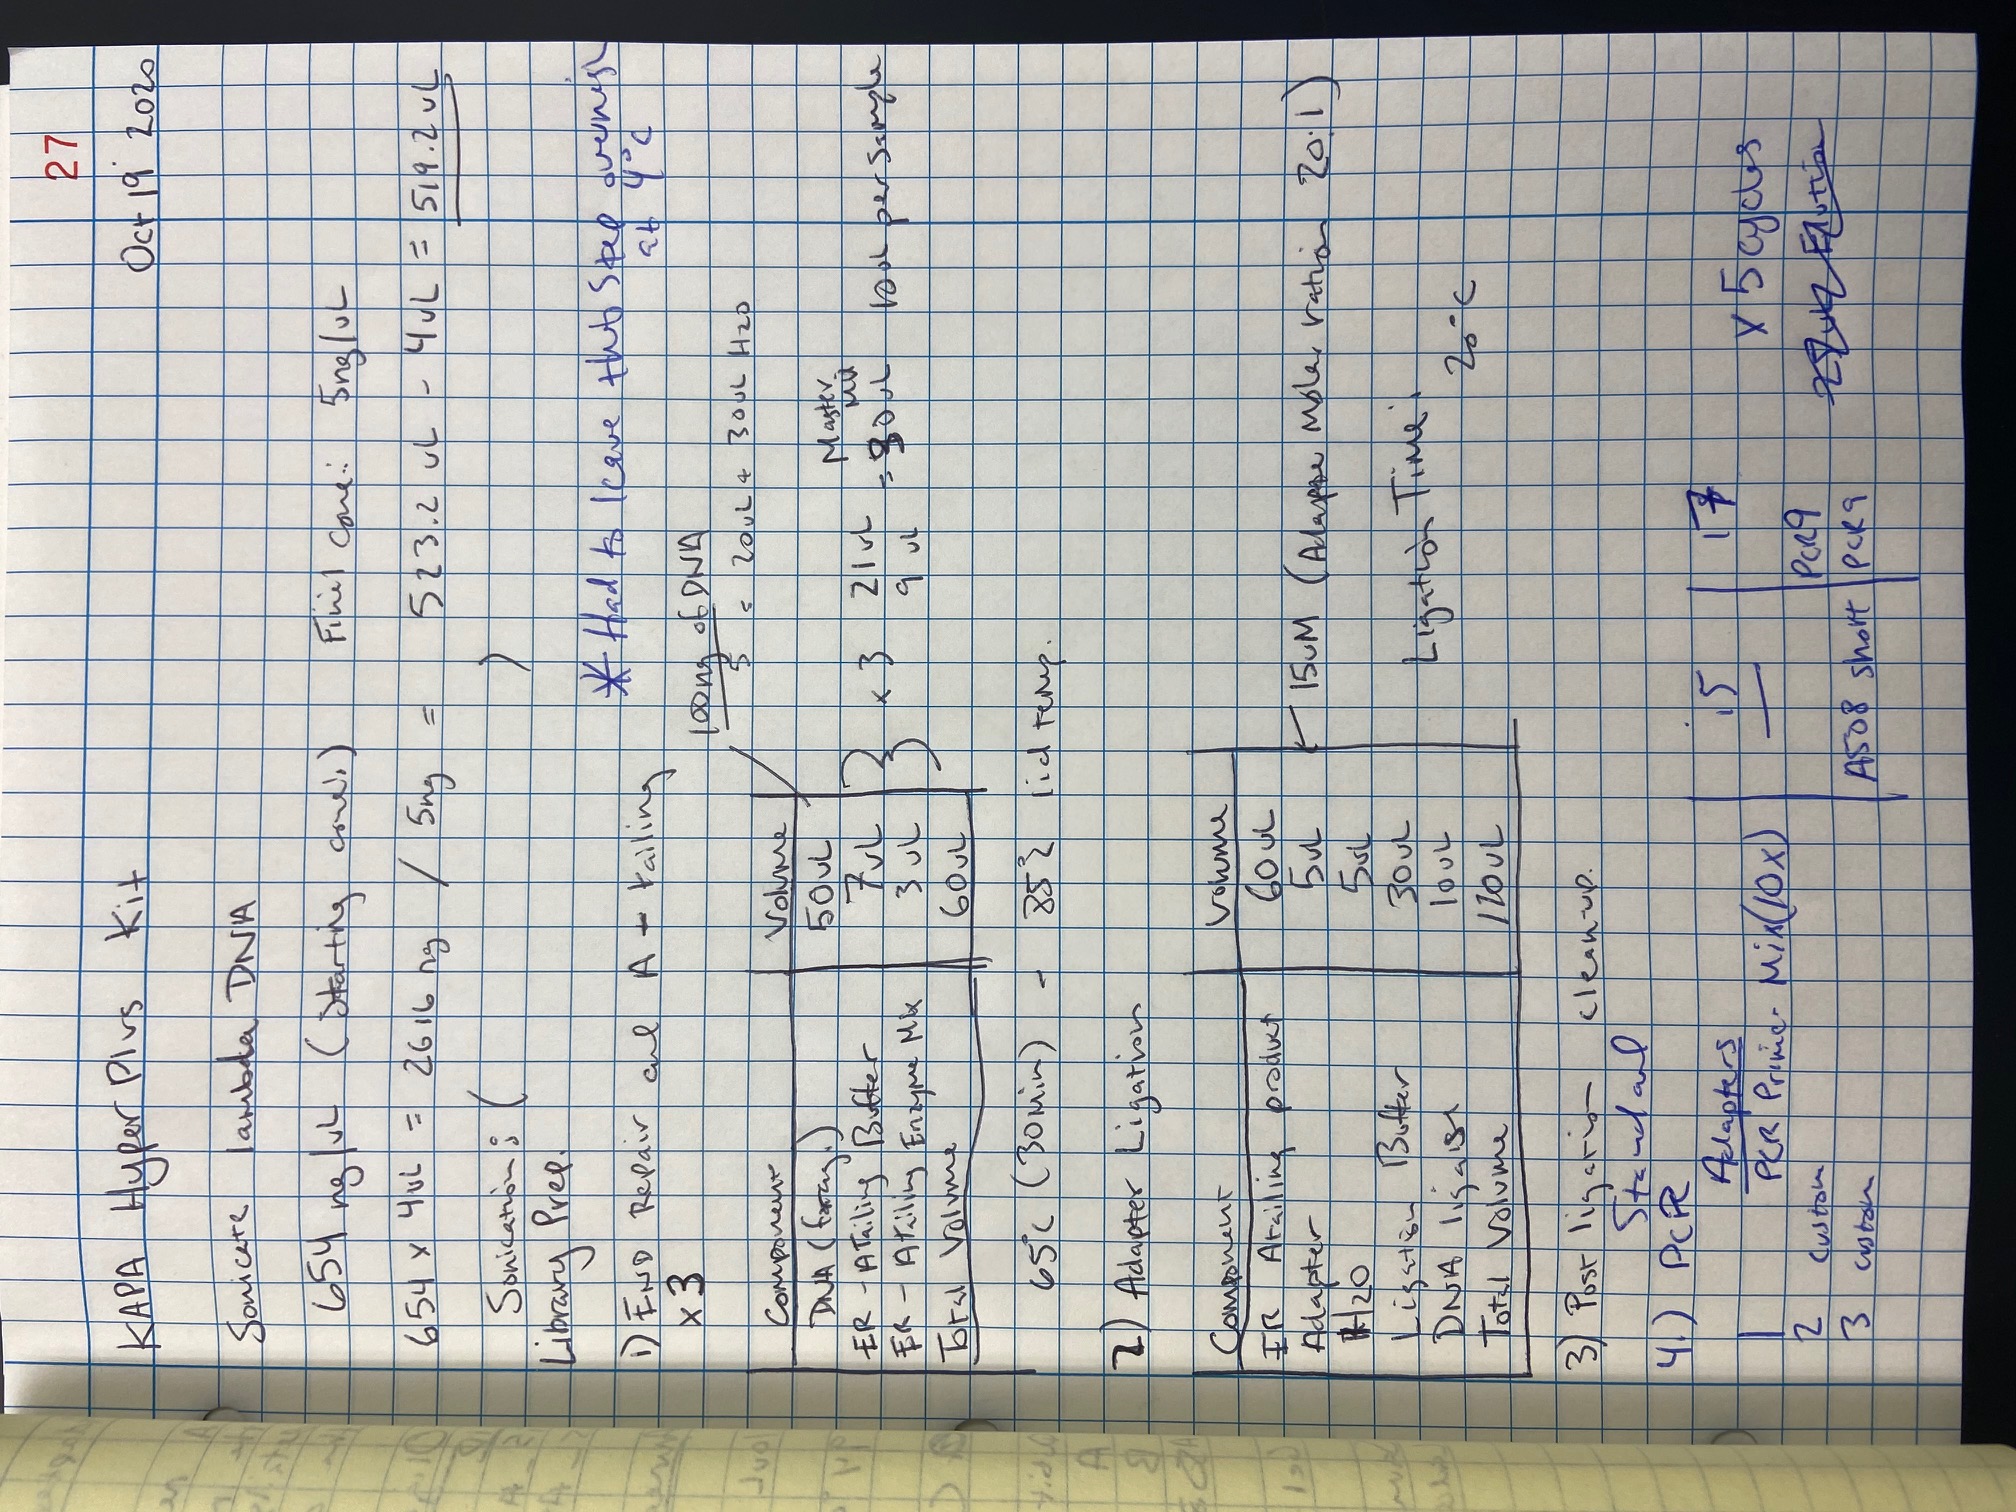 27
KAPA Hyper Plus Kit Oct 19 2020
Sonicate lambda DNA
654 ng/uL (Starting conc.) Final conc.: 5ng/uL
654 x 4uL = 2616 ng / 5ng = 523.2 uL - 4uL = 519.2 uL
Sonication: ( )
Library Prep.
* Had to leave this step overnigh
at 4°C
1) END Repair and A-tailing
x3
100ng of DNA
5 = 20uL + 30uL H2O
Component Volume
DNA (frag.) 50uL
ER - ATailing Buffer 7uL
ER - ATailing Enzyme Mix 3uL
Total Volume 60uL
x 3 21uL
9 uL
= 30uL Master Mix 10uL per sample
65°C (30Min) - 85°C lid temp.
2) Adapter Ligation
Component Volume
ER Atailing product 60uL
Adapter 5uL 15uM (Adapter Molar ration 20:1)
H2O 5uL
Ligation Buffer 30uL
DNA ligase 10uL
Total Volume 110uL
Ligation Time:
20°C
3) Post ligation clean-up.
Standard
4.) PCR
Adapters i5 i7
1 PCR Primer Mix(10x) — x 5 cycles
2 custom PCR9
3 custom A508 short PCR9